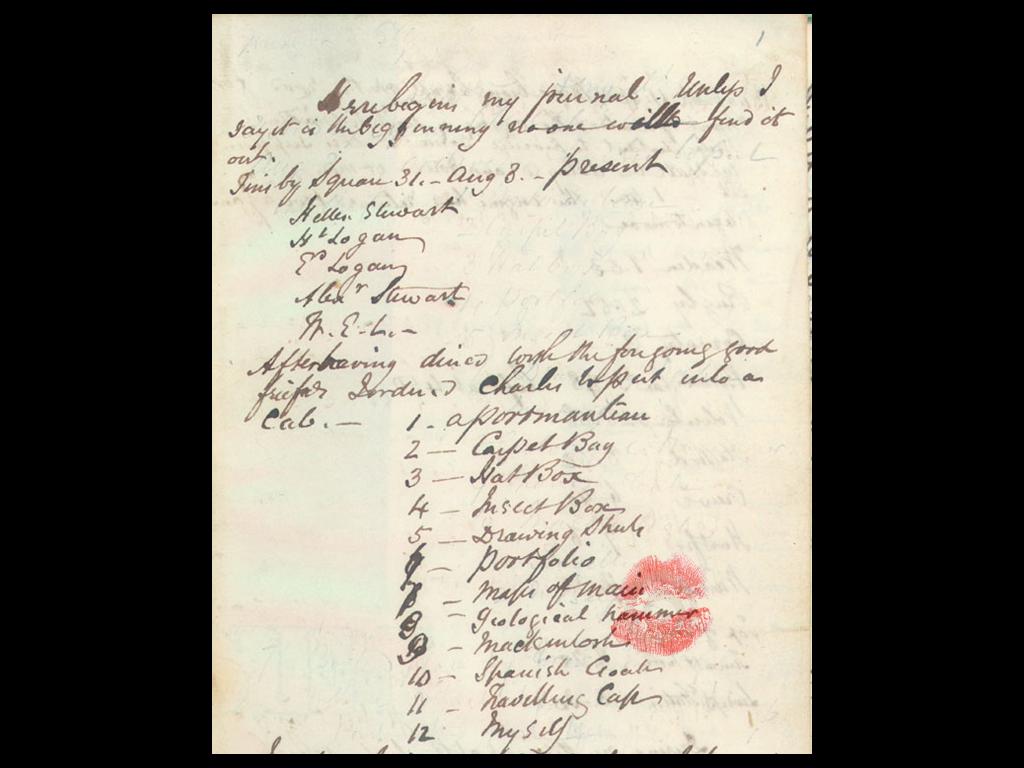 1
Here begins my journal. Unless I
say it is the beginning no one will find it
out.
Finsby Square 31. - Aug 8. - present
Hellen Stewart
Ht Logan
Ed Logan
Alexr Stewart
W. E. L. -
After having dined with the foregoing good
I ordered Charles to put into a
Cab. - 1 - a portmanteau
2 - Carpet Bag
3 - Hat Box
4 - Insect Box
5 - Drawing
6 - portfolio
7 - maps of
8 - Geological hammer
9 - Mackintosh
10 - Spanish Cloak
11 - Travelling Cap
12 - Myself